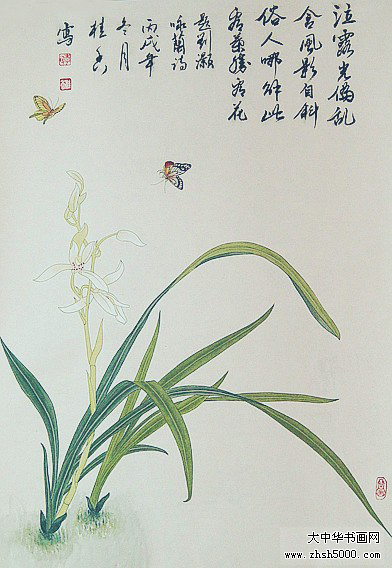 泣露光偏乱
含風影自斜
俗人哪解此
看葉勝看花
題刘灏
咏蘭詩
丙戌年
冬月
桂香
寫
大中华书画网
www.zhsh5000.com